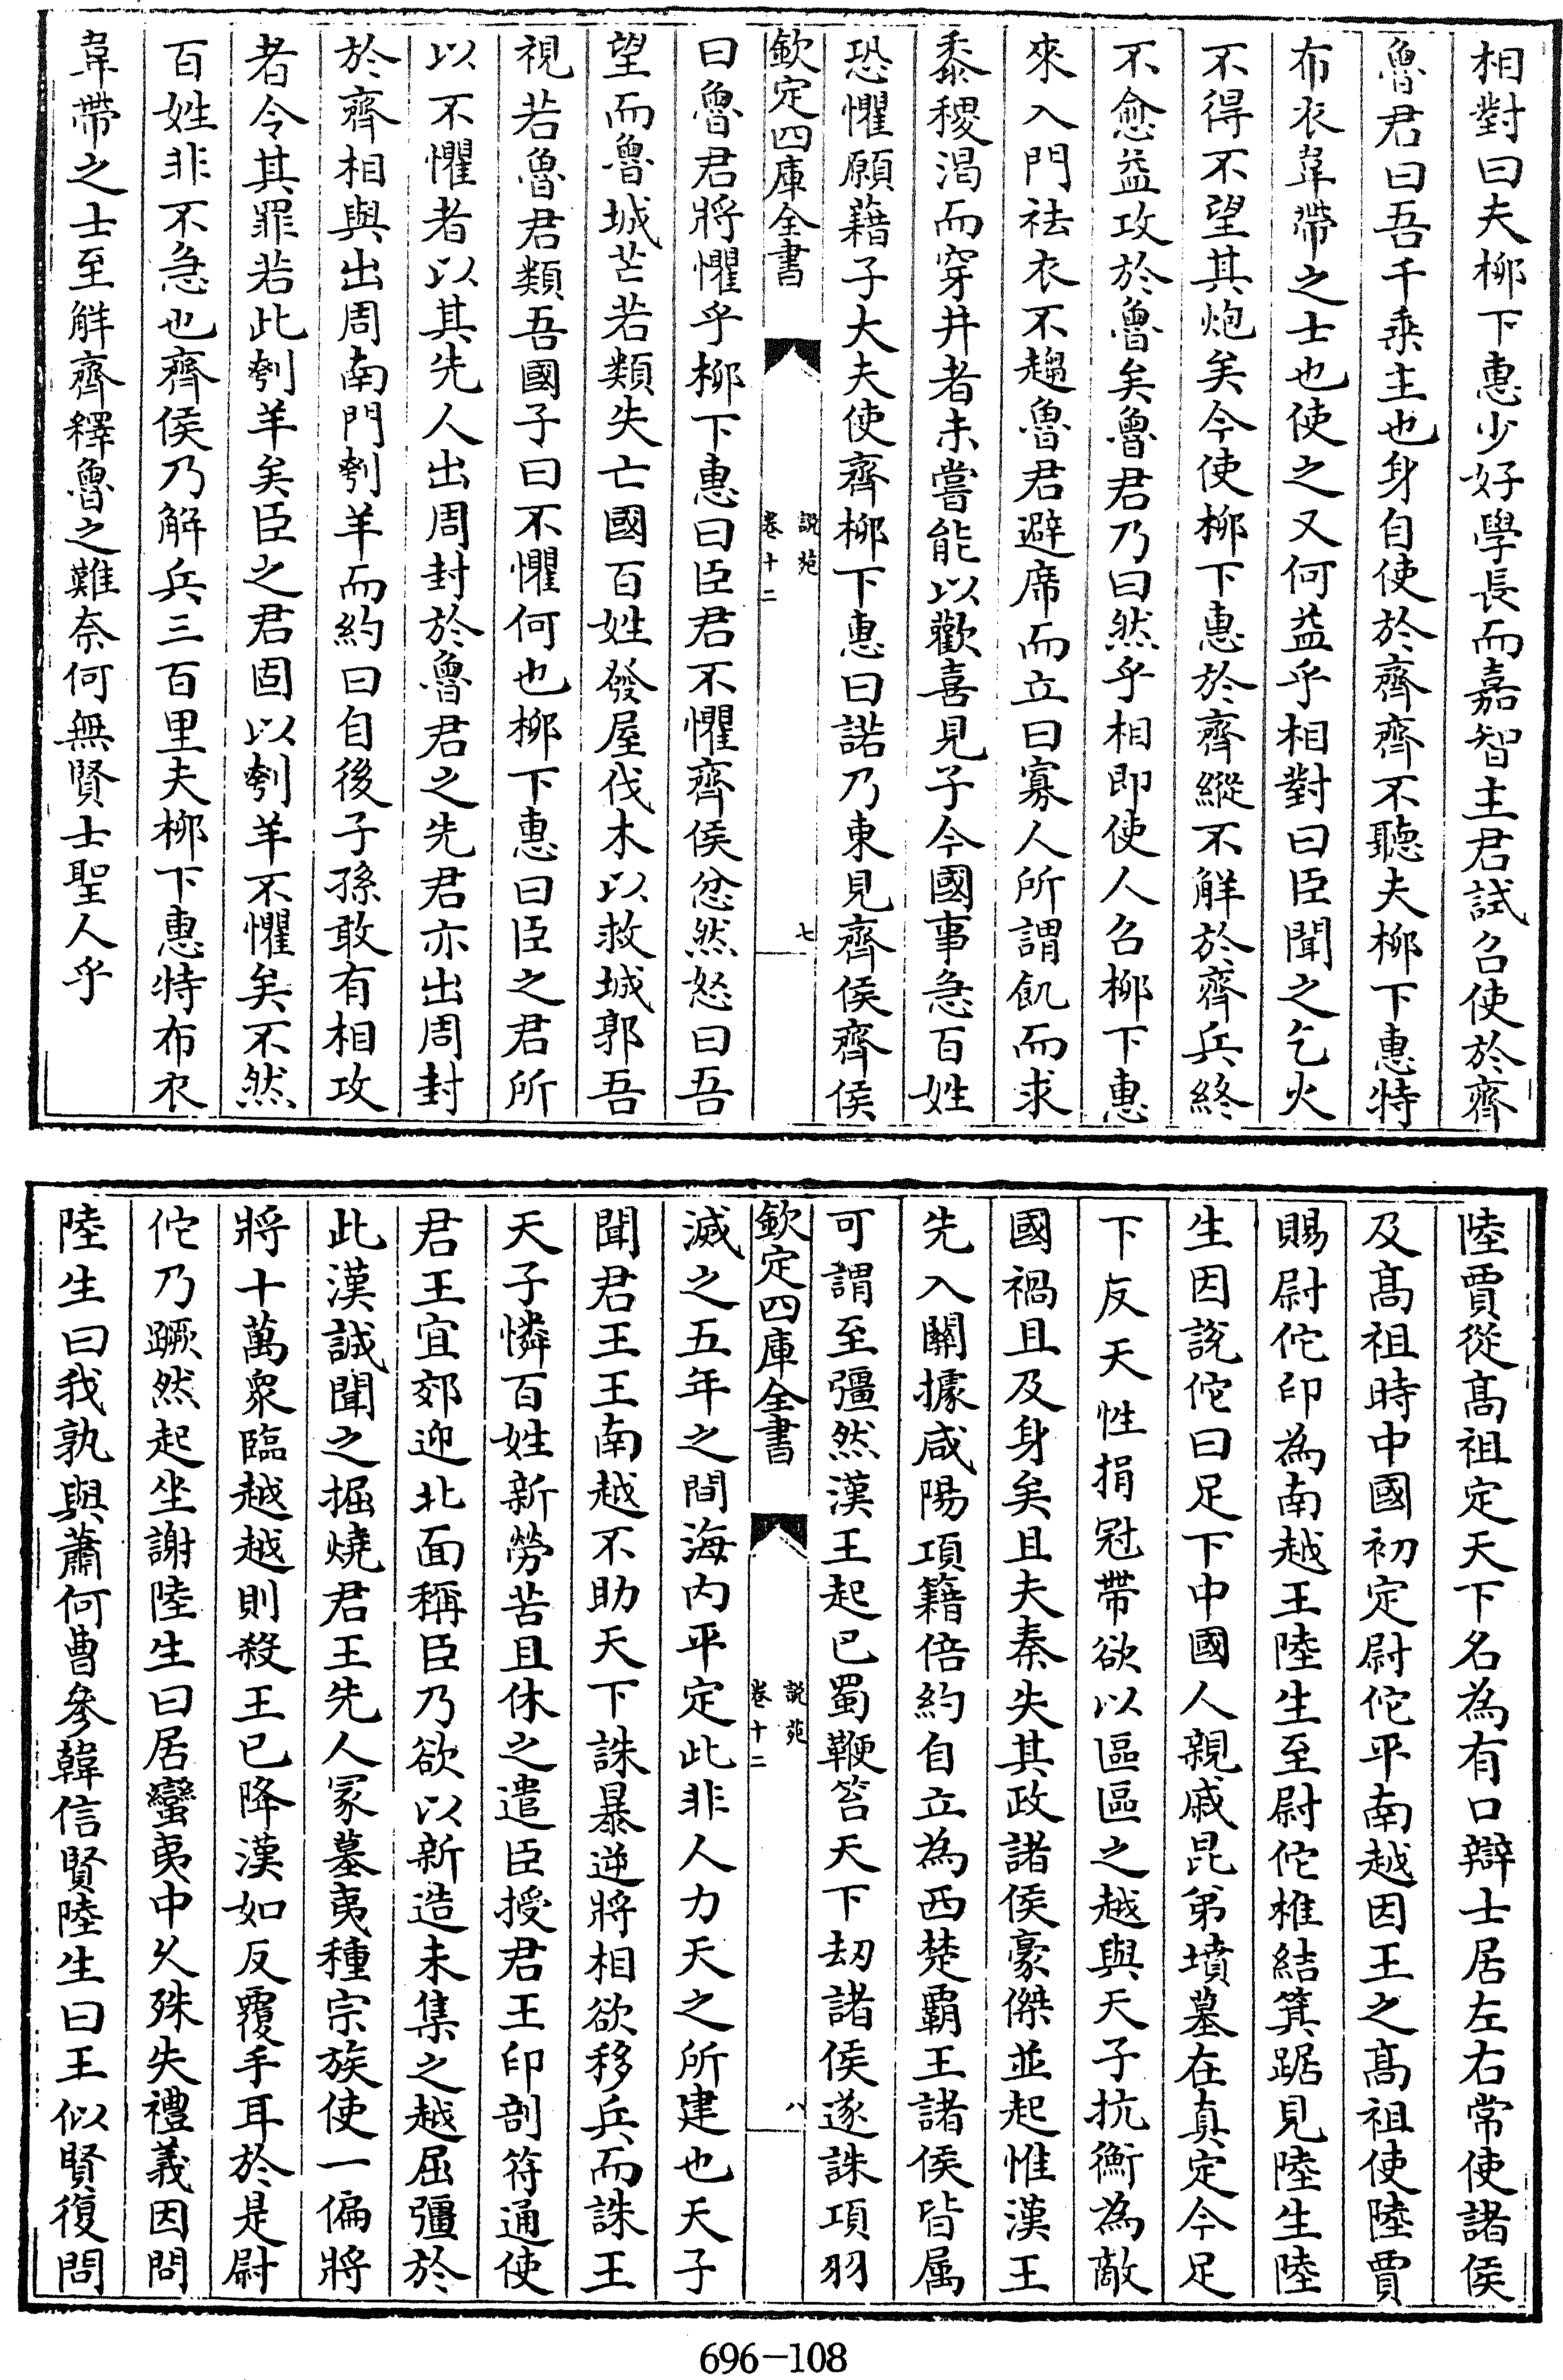 相對曰夫柳下惠少好學長而嘉智主君試召使於齊
魯君曰吾千乗主也身自使於齊齊不聽夫柳下惠特
布衣韋帶之士也使之又何益乎相對曰臣聞之乞火
不得不望其炮矣今使柳下惠於齊縱不解於齊兵終
不愈益攻於魯矣魯君乃曰然乎相即使人召柳下惠
來入門袪衣不趨魯君避席而立曰寡人所謂飢而求
黍稷渇而穿井者未嘗能以歡喜見子今國事急百姓
恐懼願藉子大夫使齊柳下惠曰諾乃東見齊侯齊侯
欽定四庫全書
説苑
卷十二
七
曰魯君將懼乎柳下惠曰臣君不懼齊侯忿然怒曰吾
望而魯城芒若類失亡國百姓發屋伐木以救城郭吾
視若魯君類吾國子曰不懼何也柳下惠曰臣之君所
以不懼者以其先人出周封於魯君之先君亦出周封
於齊相與出周南門刳羊而約曰自後子孫敢有相攻
者令其罪若此刳羊矣臣之君固以刳羊不懼矣不然
百姓非不急也齊侯乃解兵三百里夫柳下惠特布衣
韋帶之士至解齊釋魯之難奈何無賢士聖人乎
陸賈從髙祖定天下名為有口辯士居左右常使諸侯
及髙祖時中國初定尉佗平南越因王之髙祖使陸賈
賜尉佗印為南越王陸生至尉佗椎結箕踞見陸生陸
生因説佗曰足下中國人親戚昆弟墳墓在真定今足
下反天性捐冠帶欲以區區之越與天子抗衡為敵
國禍且及身矣且夫秦失其政諸侯豪傑並起惟漢王
先入關據咸陽項籍倍約自立為西楚霸王諸侯皆屬
可謂至彊然漢王起巴蜀鞭笞天下刼諸侯遂誅項羽
欽定四庫全書
説苑
卷十二
八
滅之五年之間海内平定此非人力天之所建也天子
聞君王王南越不助天下誅暴逆將相欲移兵而誅王
天子憐百姓新勞苦且休之遣臣授君王印剖符通使
君王宜郊迎北面稱臣乃欲以新造未集之越屈彊於
此漢誠聞之掘燒君王先人冢墓夷種宗族使一偏將
將十萬衆臨越越則殺王已降漢如反覆手耳於是尉
佗乃蹶然起坐謝陸生曰居蠻夷中乆殊失禮義因問
陸生曰我孰與蕭何曹參韓信賢陸生曰王似賢復問
696-108